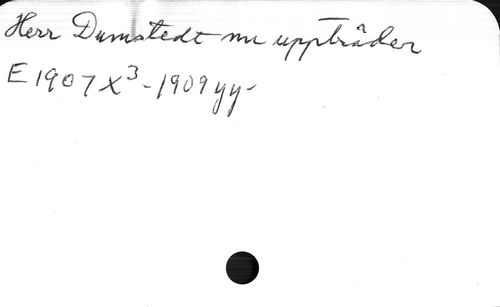 Herr Dumstedt nu uppträder
E 1907 X³ - 1909 yy -